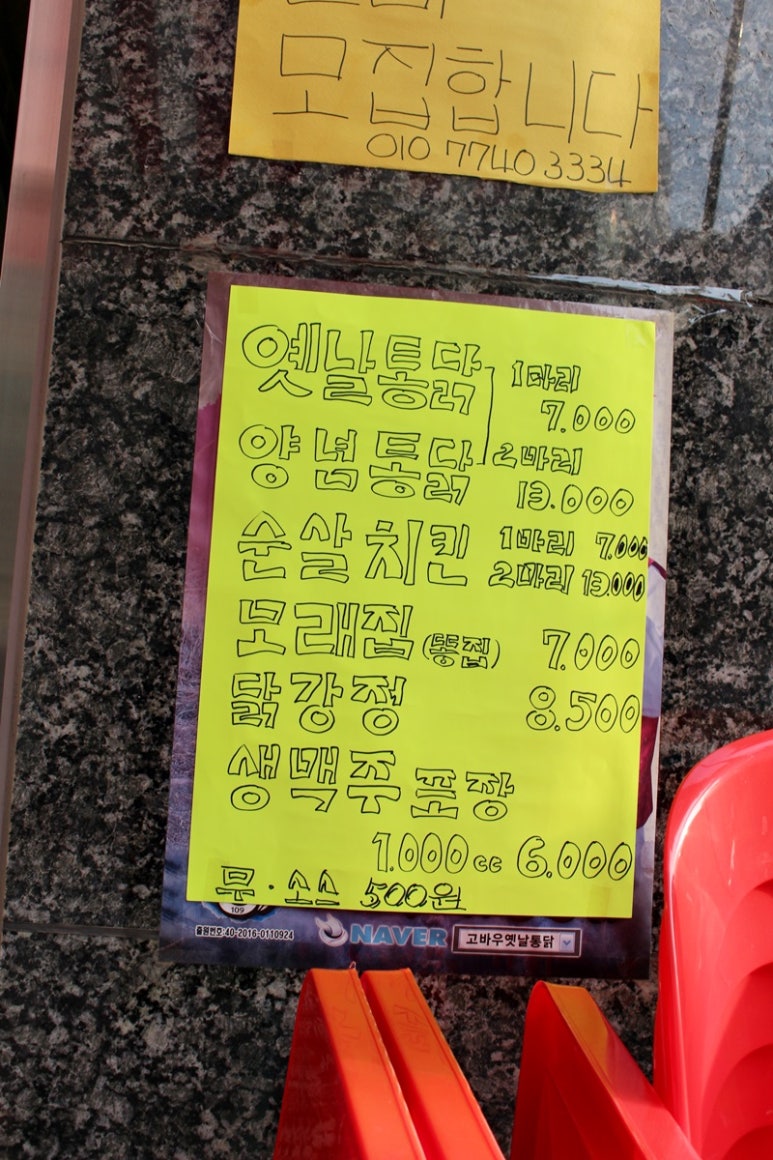 모집합니다
010 7740 3334
옛날통닭 1마리
7.000
양념통닭 2마리
13.000
순살치킨 1마리 7.000
2마리 13.000
모래집(똥집) 7.000
닭강정 8.500
생맥주포장
1.000cc 6.000
무·소스 500원
109
출원번호:40-2016-0110924
NAVER 고바우옛날통닭